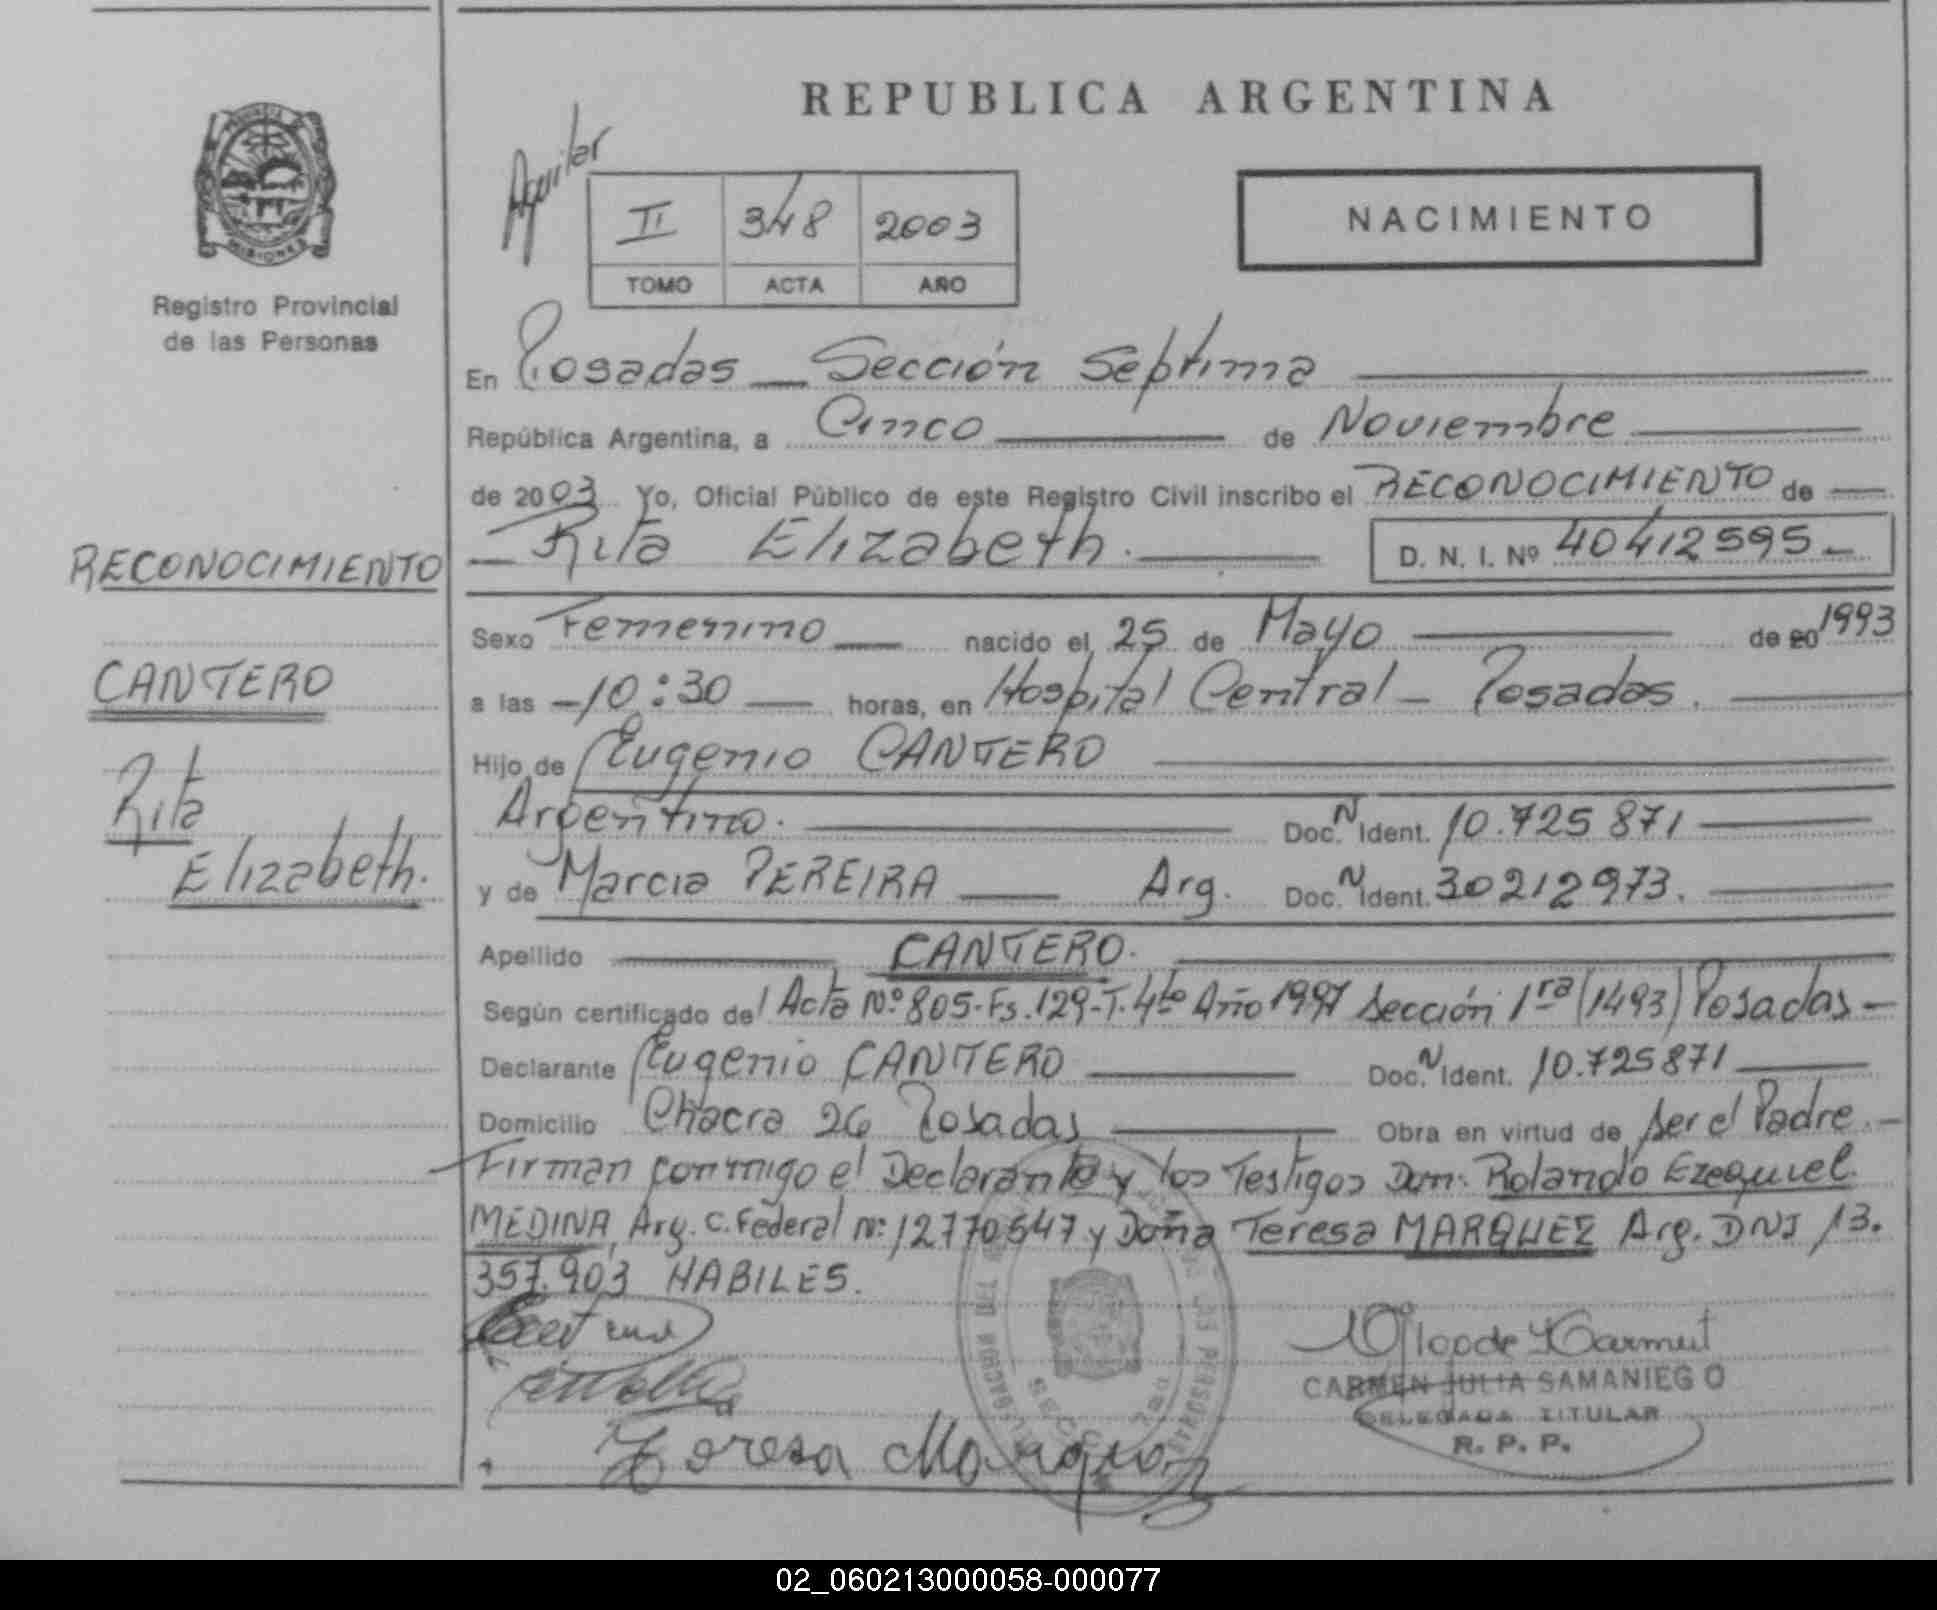 REPUBLICA ARGENTINA
PROVINCIA DE
MISIONES
Registro Provincial
de las Personas
Aguilar
II 348 2003
TOMO ACTA AÑO
NACIMIENTO
En Posadas — Sección Septima
República Argentina, a Cinco de Noviembre
de 2003 Yo, Oficial Público de este Registro Civil inscribo el RECONOCIMIENTO de
Rita Elizabeth. D. N. I. Nº 40412595-
RECONOCIMIENTO
CANTERO
Rita
Elizabeth.
Sexo Femenino nacido el 25 de Mayo de 20 1993
a las -10:30 horas, en Hospital Central - Posadas.
Hijo de Eugenio CANTERO
Argentino. Doc. N Ident. 10.725871
y de Marcia PEREIRA Arg. Doc. N Ident. 30212973.
Apellido CANTERO.
Según certificado del Acta Nº 805-Fs.129-T.4to Año 1997 Sección 1ra (1493) Posadas-
Declarante Eugenio CANTERO Doc. N Ident. 10.725871
Domicilio Chacra 26 Posadas Obra en virtud de ser el Padre.-
Firman conmigo el Declarante y los Testigos Don: Rolando Ezequiel
MEDINA, Arg. C. Federal nº: 12770547 y Doña Teresa MARQUEZ Arg. DNI 13.
357.903 HABILES.
Teresa Marquez
CARMEN JULIA SAMANIEGO
DELEGADA TITULAR
R. P. P.
02_060213000058-000077